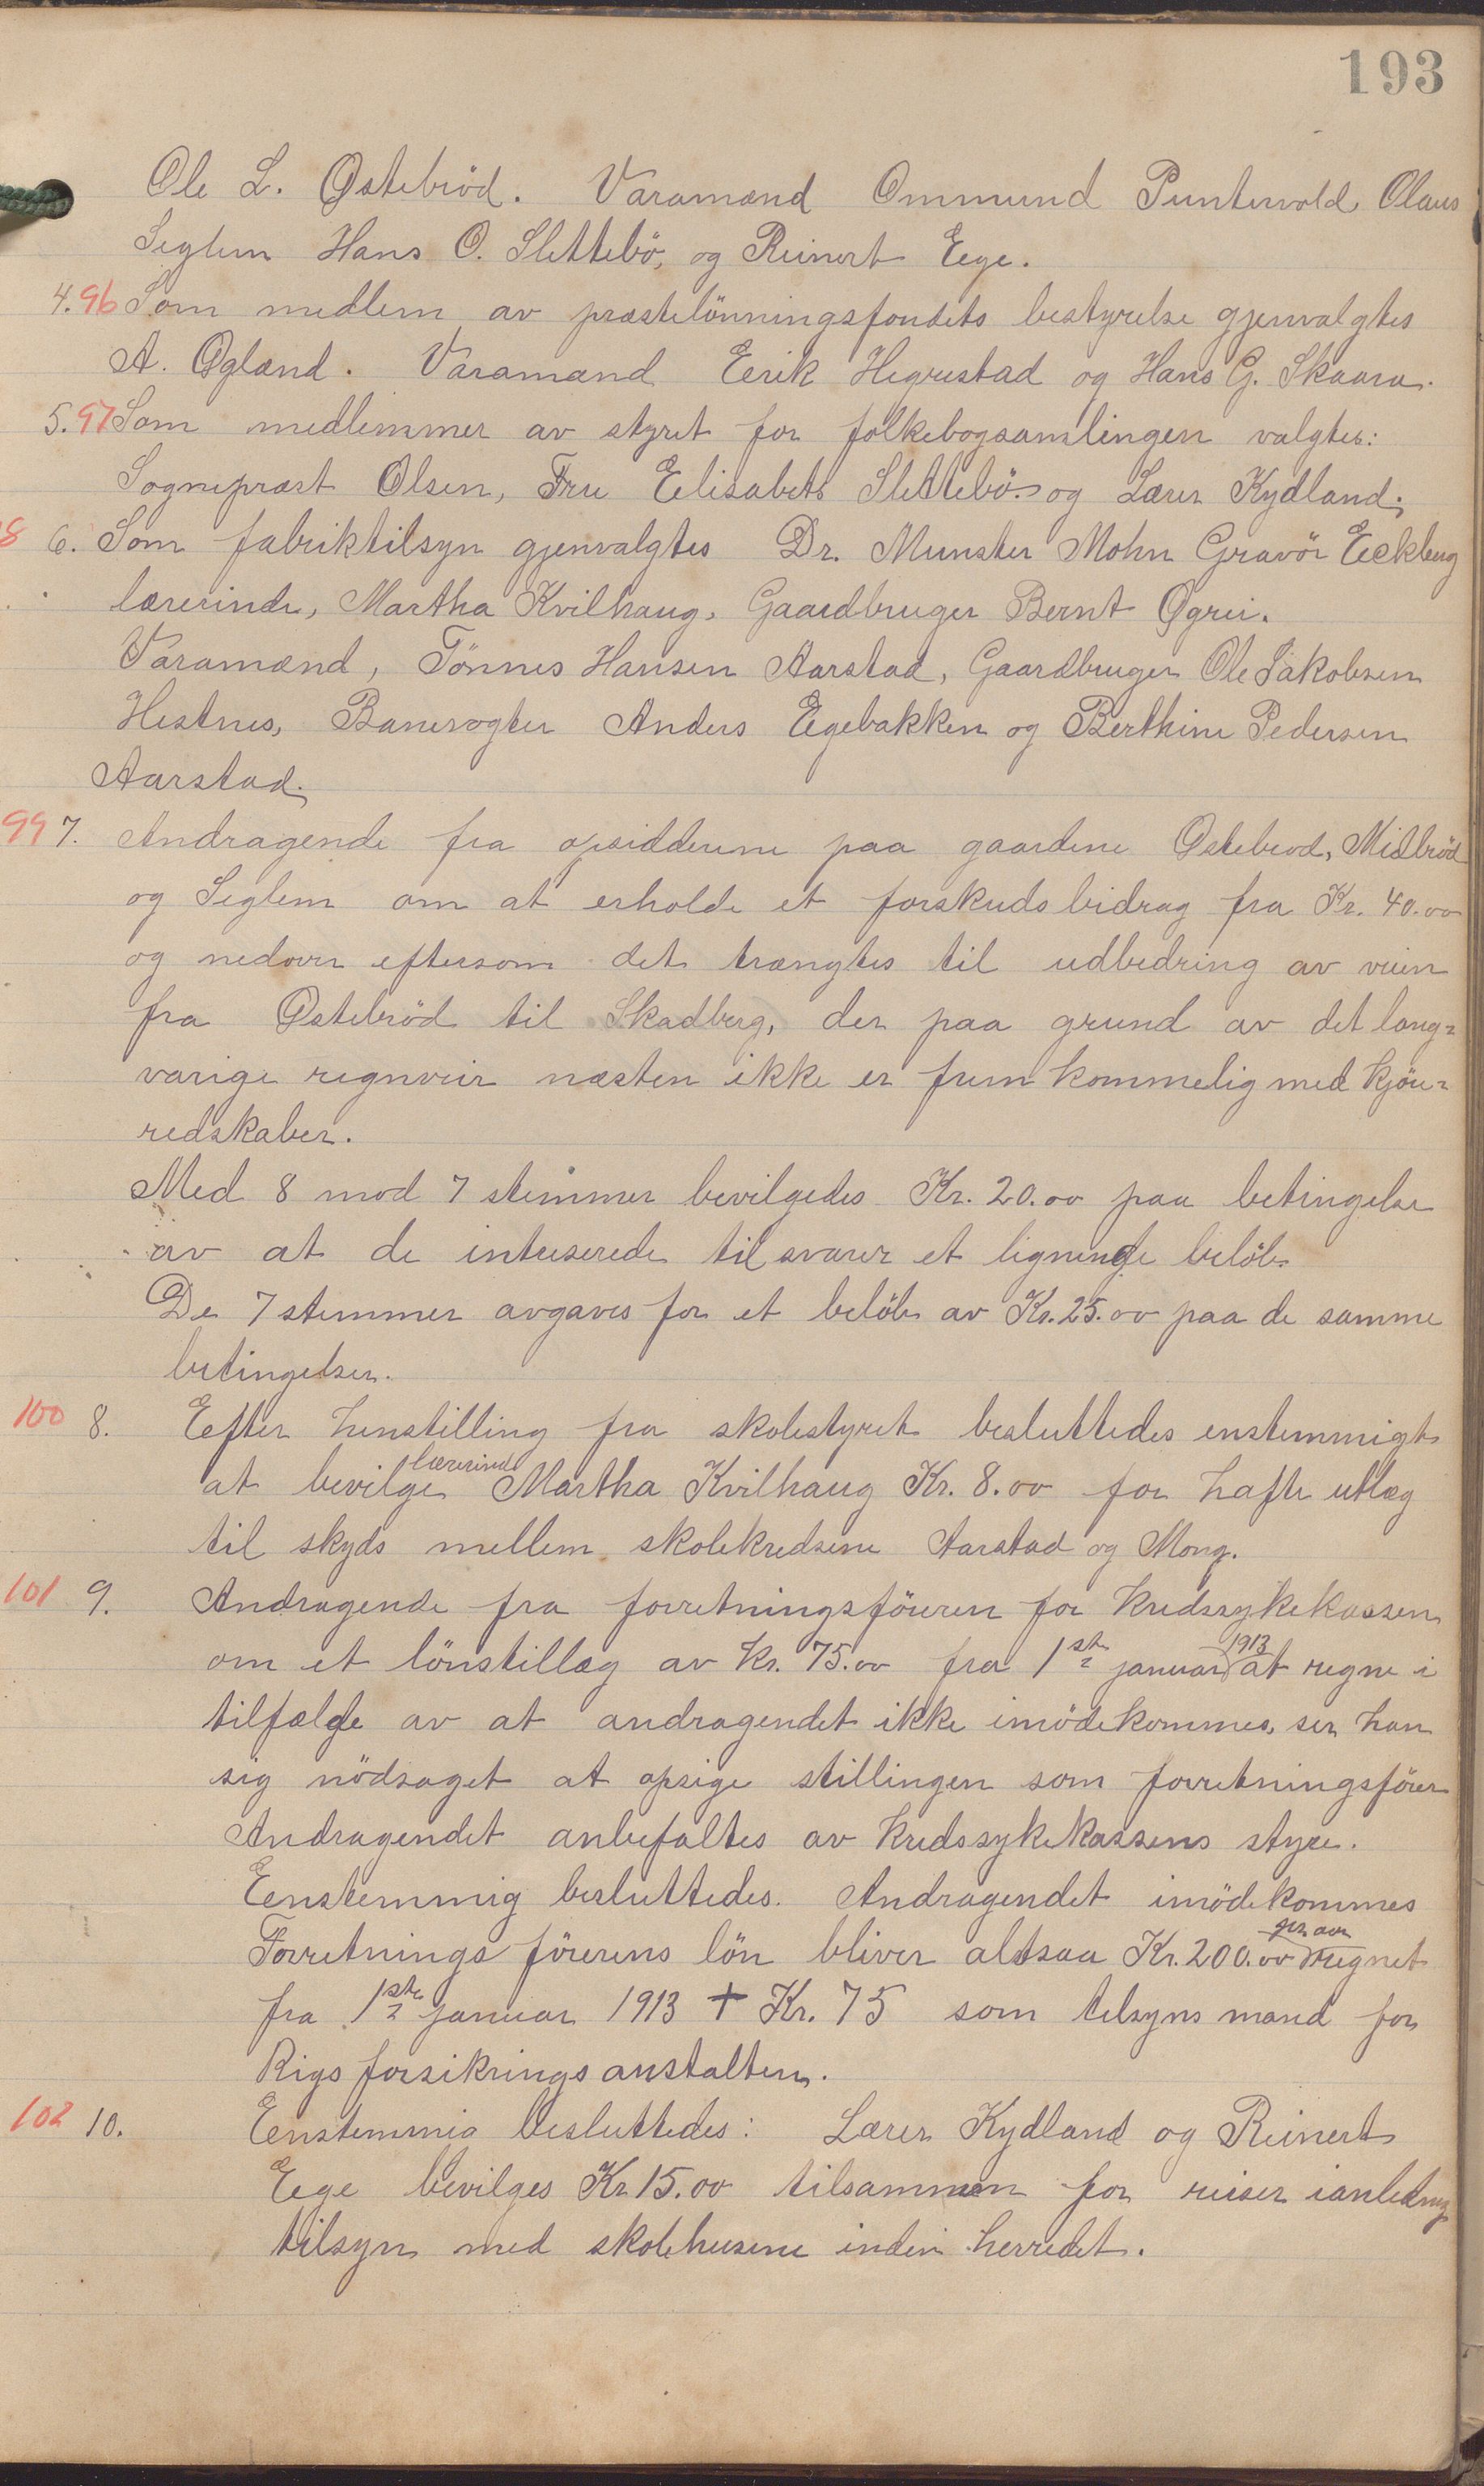 193
Ole L. Østebröd. Varamænd Ommund Puntervold, Olaus
Seglem Hans O. Slettebö, og Reinert Eege.
4. 96 Som medlem av præstelönningsfondets bestyrelse gjenvalgtes
A. Øgland. Varamænd Eerik Hegrestad og Hans G. Skaara.
5. 97 Som medlemmer av styret for folkebogsamlingen valgtes:
Sogneprest Olsen, Fru Eelisabeth Slettebö og Lærer Kydland.
8 6. Som fabriktilsyn gjenvalgtes Dr. Munster Mohn Gravör Eeckbug
lærerinde, Martha Kvilhaug, Gaardbruger Bernt Øgrei.
Varamænd, Tönnes Hansen Aarstad, Gaardbruger Ole Jakobsen
Hestnes, Banevogter Anders Eegebakken og Berthine Pedersen
Aarstad.
99 7. Andragende fra opsidderne paa gaardene Østebrod, Midbröd
og Seglem om at erholde et forskuds bidrag fra Kr. 40.00
og nedover eftersom det trængtes til udbedring av veien
fra Østebröd til Skadberg, der paa grund av det lang=
varige regnveir næsten ikke er frem kommelig med kjöre=
redskaber.
Med 8 mod 7 stemmer bevilgedes Kr. 20.00 paa betingelse
av at de interserede tilsvarer et lignende belöb.
De 7 stemmer avgaves for et belöb av Kr. 25.00 paa de samme
betingelser.
100 8. Eefter henstilling fra skolestyret besluttedes enstemmigt
at bevilge lærerinde Martha Kvilhaug Kr. 8.00 for hafte utlæg
til skyds mellem skolekredsene Aarstad og Mong.
101 9. Andragende fra forretningsföreren for kredssykekassen
om et lönstillæg av kr. 75.00 fra 1ste januar 1913 at regne i
tilfælde av at andragendet ikke imödekommes, ser han
sig nödsaget at opsige stillingen som forretningsförer
Andragendet anbefaltes av kredssykekassens styre.
Eenstemmig besluttedes. Andragendet imödekommes
Forretnings förerens lön bliver altsaa Kr. 200.00 pr aar regnet
fra 1ste januar 1913 + Kr. 75 som tilsyns mand for
Rigsforsikrings anstalten.
102 10. Eenstemmig besluttedes: Lærer Kydland og Reinert
Eege bevilges Kr 15.00 tilsammen for reiser ianledng
tilsyn med skolehusene inden herredet.